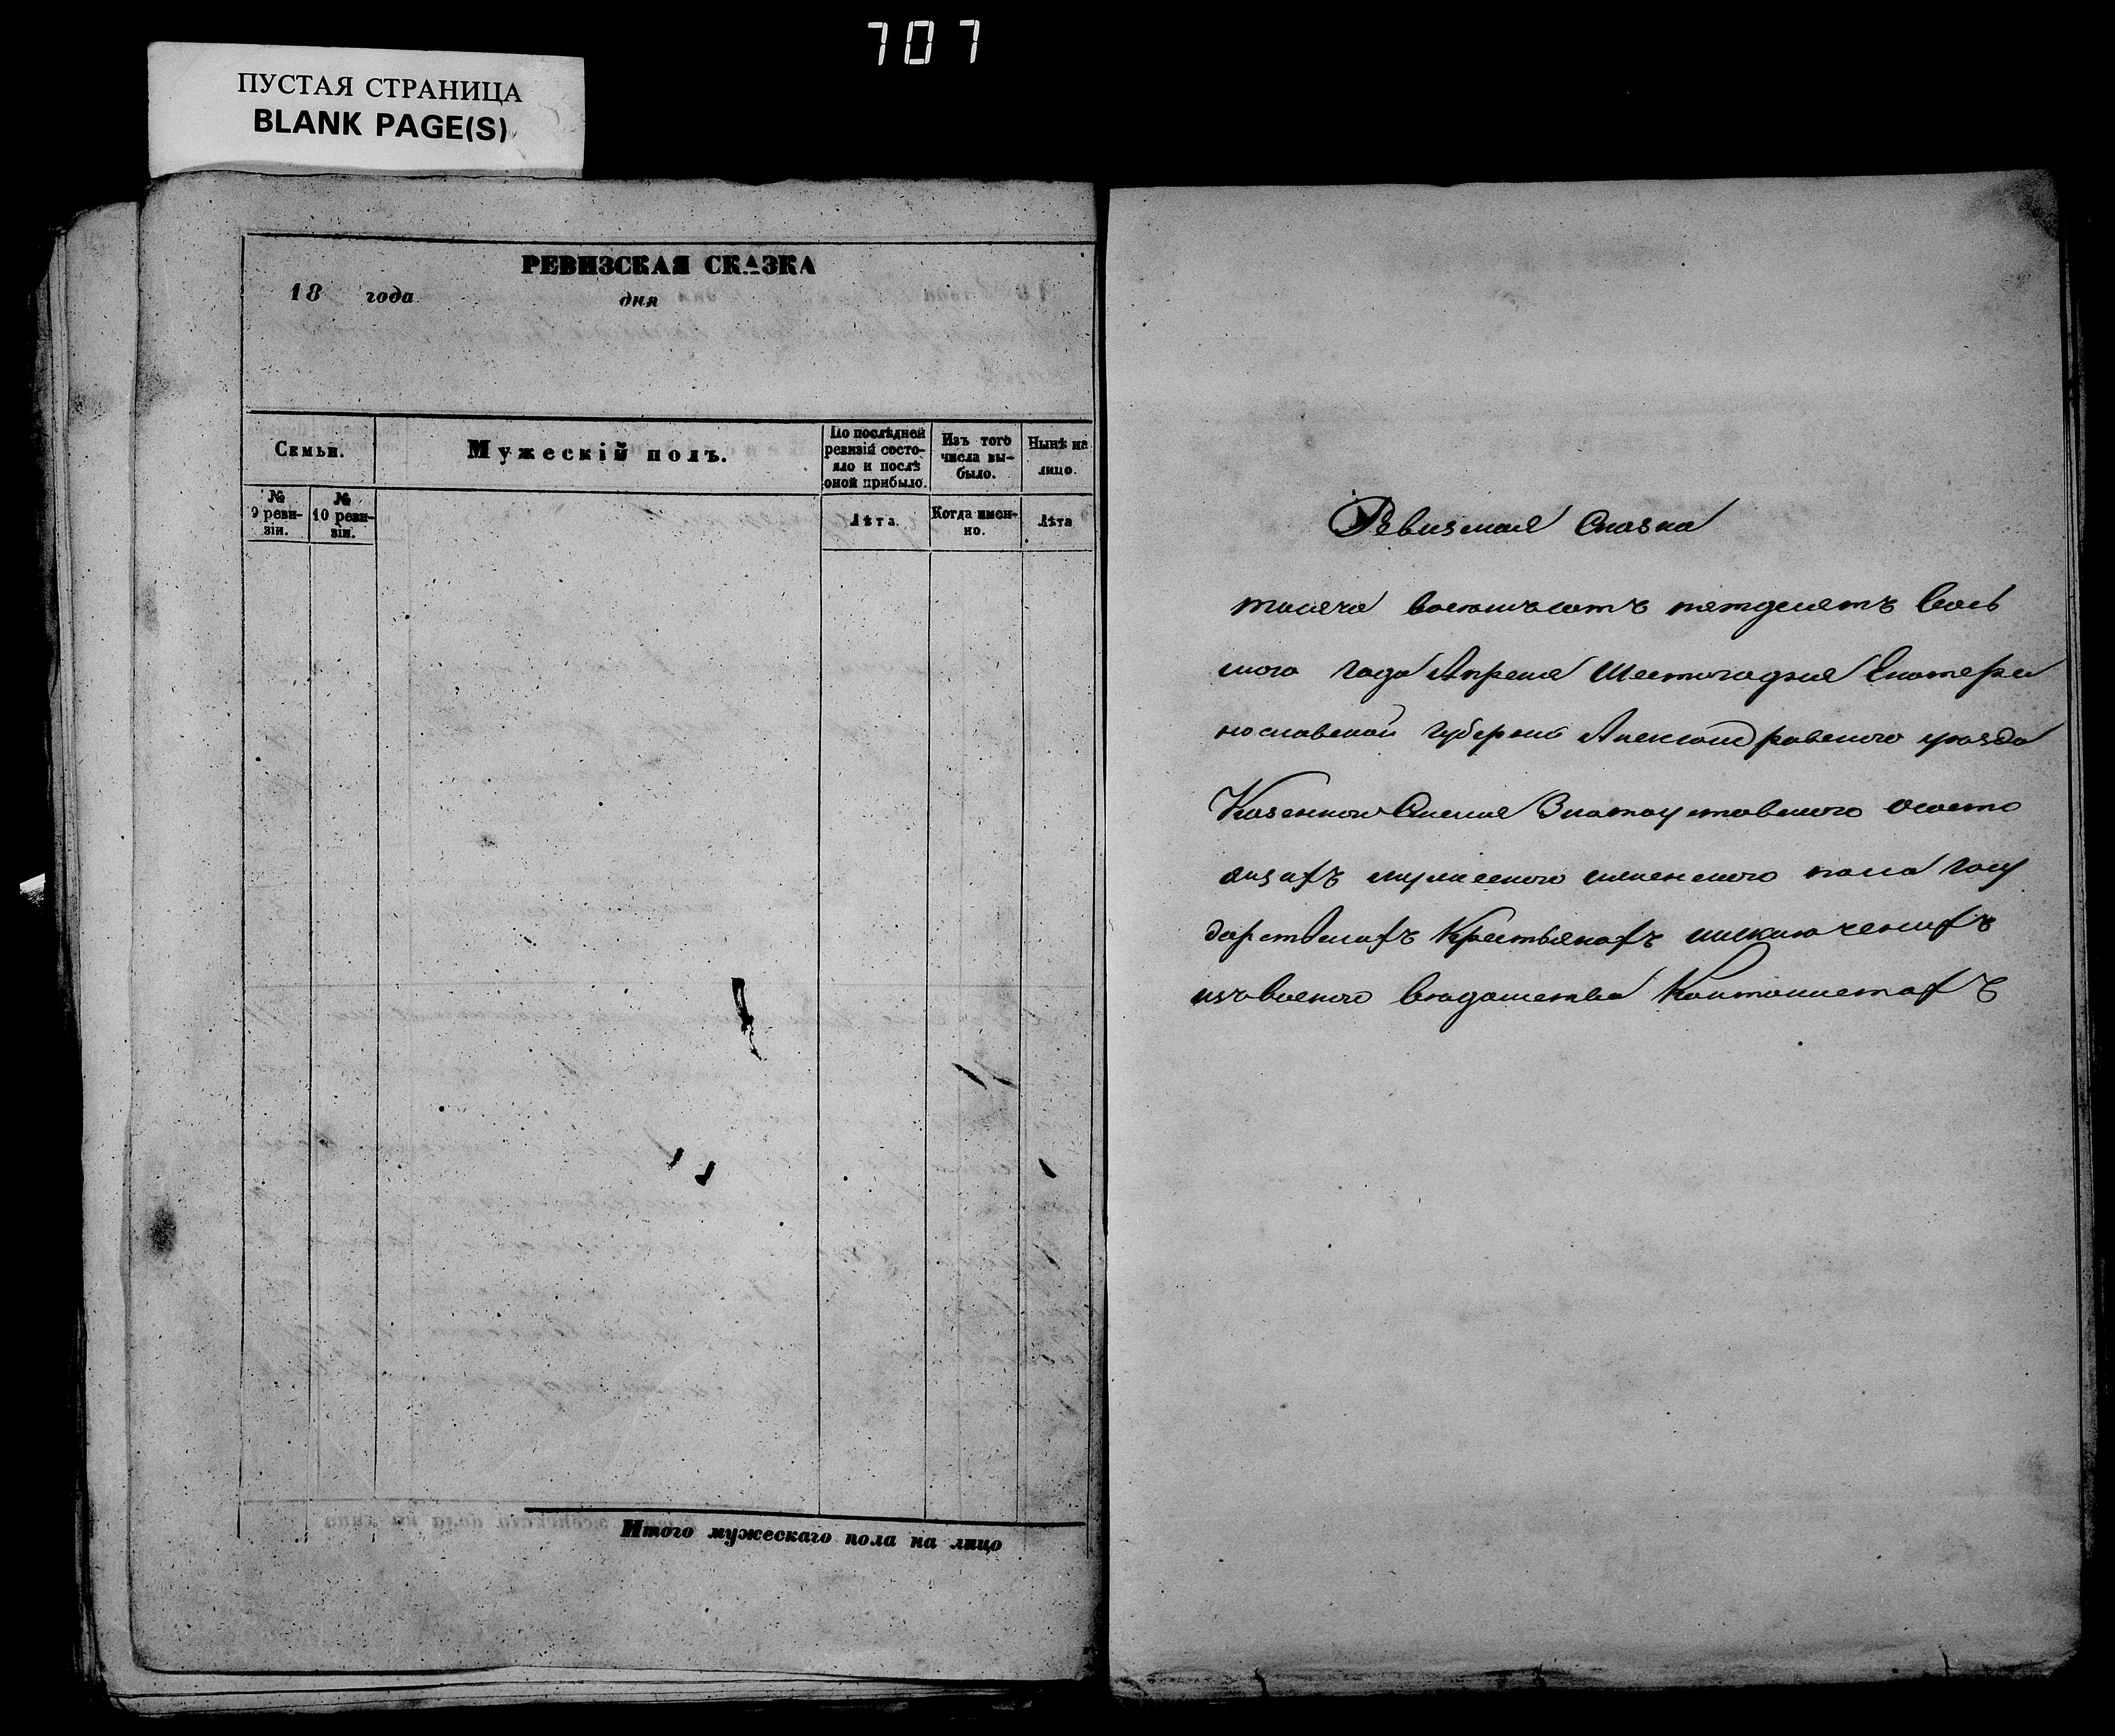 707
ПУСТАЯ СТРАНИЦА
BLANK PAGE(S)
РЕВИЗСКАЯ СКАЗКА
18 года дня
Семьи.
Мужескій полъ.
По послѣдней ревизіи состо-
яло и послѣ
оной прибыло.
Изъ того
числа вы-
было.
Нынѣ на
лицо.
№
9 реви-
зіи.
№
10 реви-
зіи.
Лѣта.
Когда имен-
но.
Лѣта
Итого мужескаго пола на лицо
Ревизкая Сказка
тисяча восемьсотъ пятдесятъ Вось
мого года Апреля Шестогодня Екатери
нославской Губерніи Александровского уезда
Казенной Златоустовского ососто
ящихъ мужеского женского пола Госу
дарственахъ Крестьянахъ изключенихъ
изъ военого ведомства Кантонистахъ